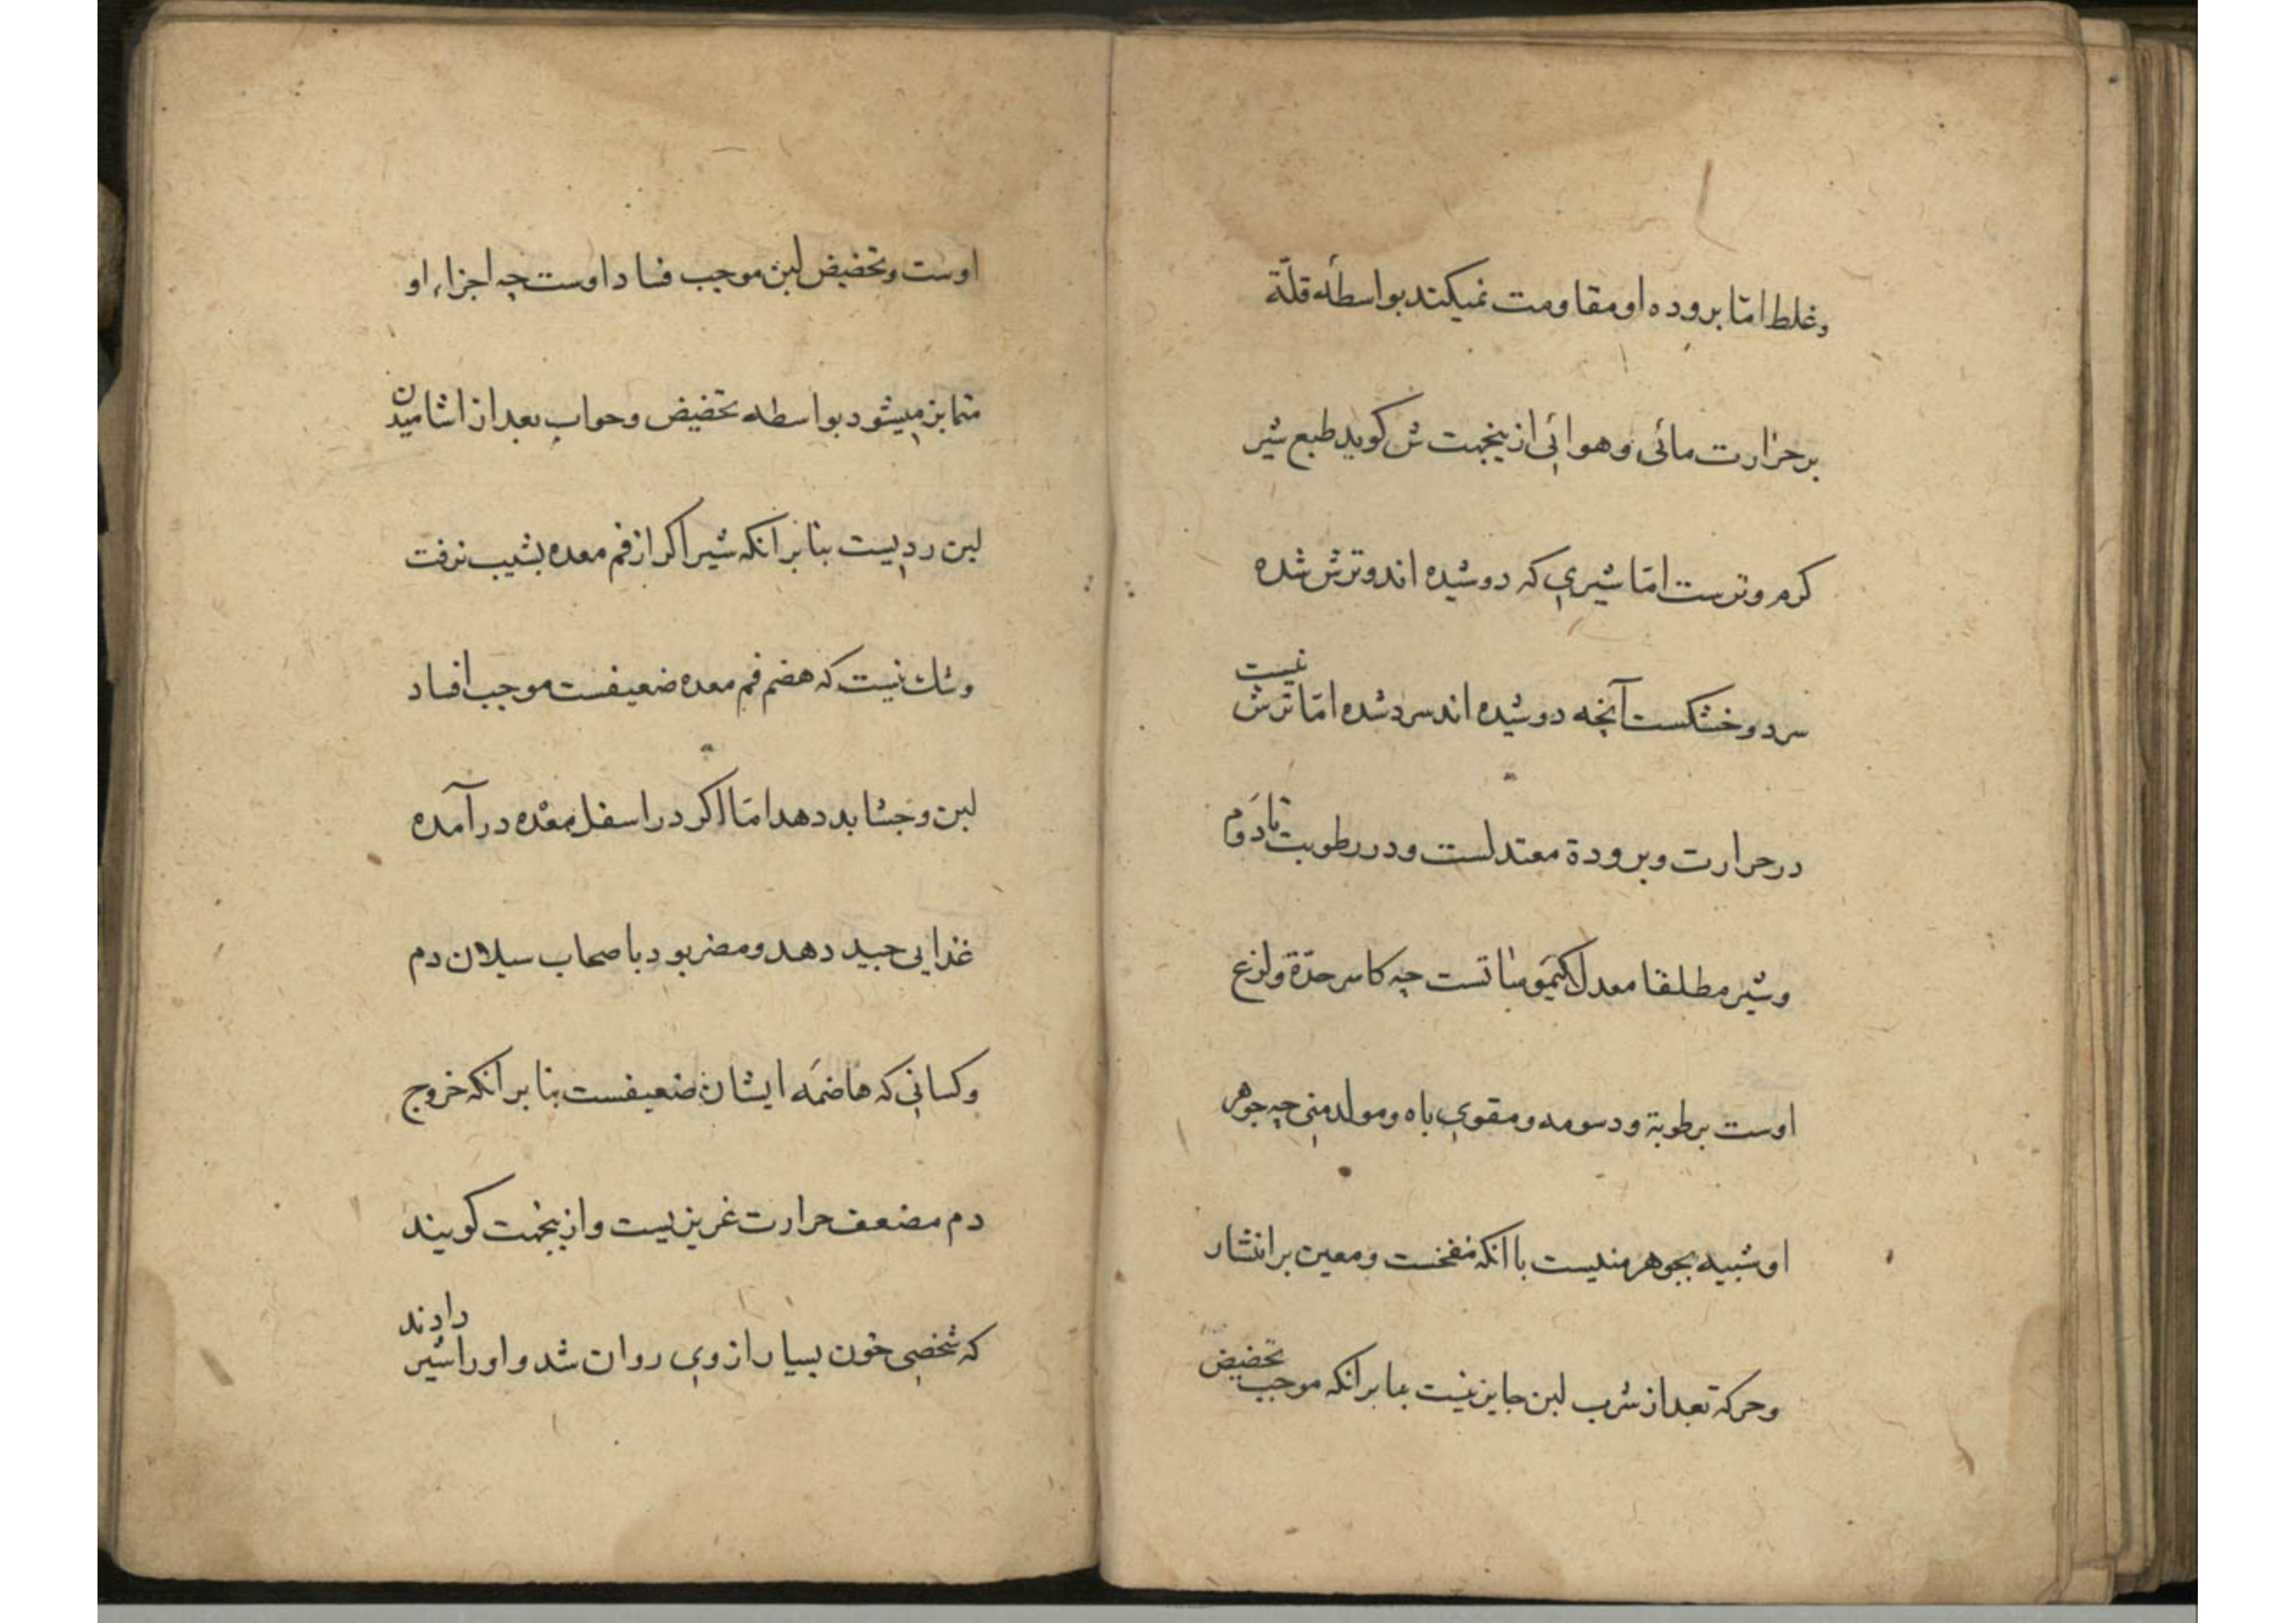 وغلط امّا بروده او مقاومت نمیکند بواسطۀ قلّة
بر حرارت مائی و هوائی ازینجهت ش کوید طبع شیر
کرم و ترست امّا شیری که دوشیده اند و ترش شده
سرد و خشکست آنچه دوشیده اند سرد شده امّا ترش نیست
در حرارت و برودة معتدلست و در رطوبت تا دَوم
وشیر مطلقا معدل کیموساتست چه کاسر حدّة ولزع
اوست برطوبة ودسومه ومقوی باه ومولد منی چه جوهر
او شبیه بجوهر منیست با انکه منفخست ومعین بر انتشار
وحرکة بعد از شرب لبن جایز نیست بنا بر انکه موجب تخضیض
اوست وتخضیض لبن موجب فساد اوست چه اجزاء او
متمایز میشود بواسطه تخضیض وخواب بعد از اشامیدن
لبن ردیست بنا بر انکه شیر اکر از فم معده بشیب نرفت
وشك نیست که هضم فم معده ضعیفست موجب افساد
لبن وجشا بد دهد امّا اکر در اسفل معده در آمده
غذایی جید دهد ومضر بود باصحاب سیلان دم
وکسانی که هاضمَه ایشان ضعیفست بنا بر انکه خروج
دم مضعف حرارت غریزیست وازینجهت کویند
که شخصی خون بسیار از وی روان شد واورا شیر دادند